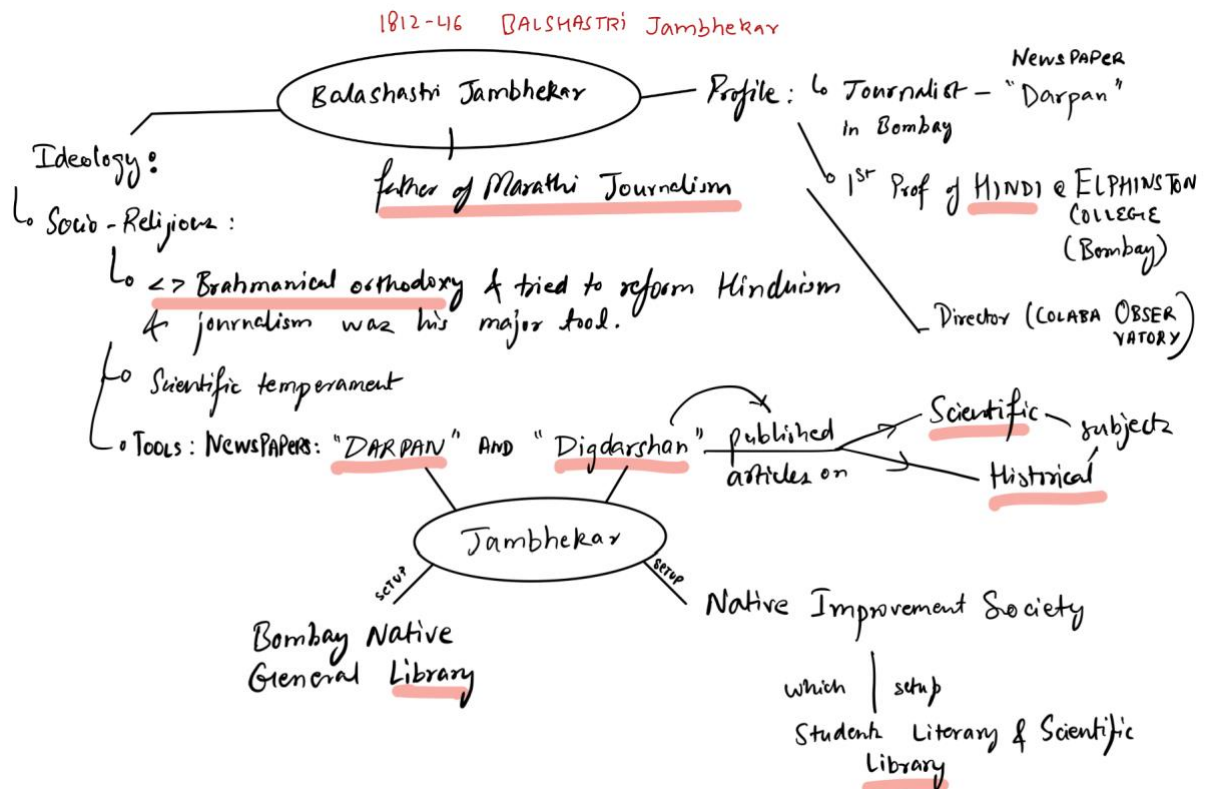 1812-46 BALSHASTRI Jambhekar
Balashastri Jambhekar
father of Marathi Journalism
Profile: Journalist - "Darpan"
NEWSPAPER
in Bombay
1st Prof of HINDI @ ELPHINSTON
COLLEGE
(Bombay)
Director (COLABA OBSER
VATORY)
Ideology:
Socio-Religious:
<> Brahmanical orthodoxy & tried to reform Hinduism
& journalism was his major tool.
Scientific temperament
TOOLS: NEWSPAPERS: "DARPAN" AND "Digdarshan" published
articles on
Scientific
Historical
subjects
Jambhekar
SETUP
Bombay Native
General Library
SETUP
Native Improvement Society
which setup
Students Literary & Scientific
Library